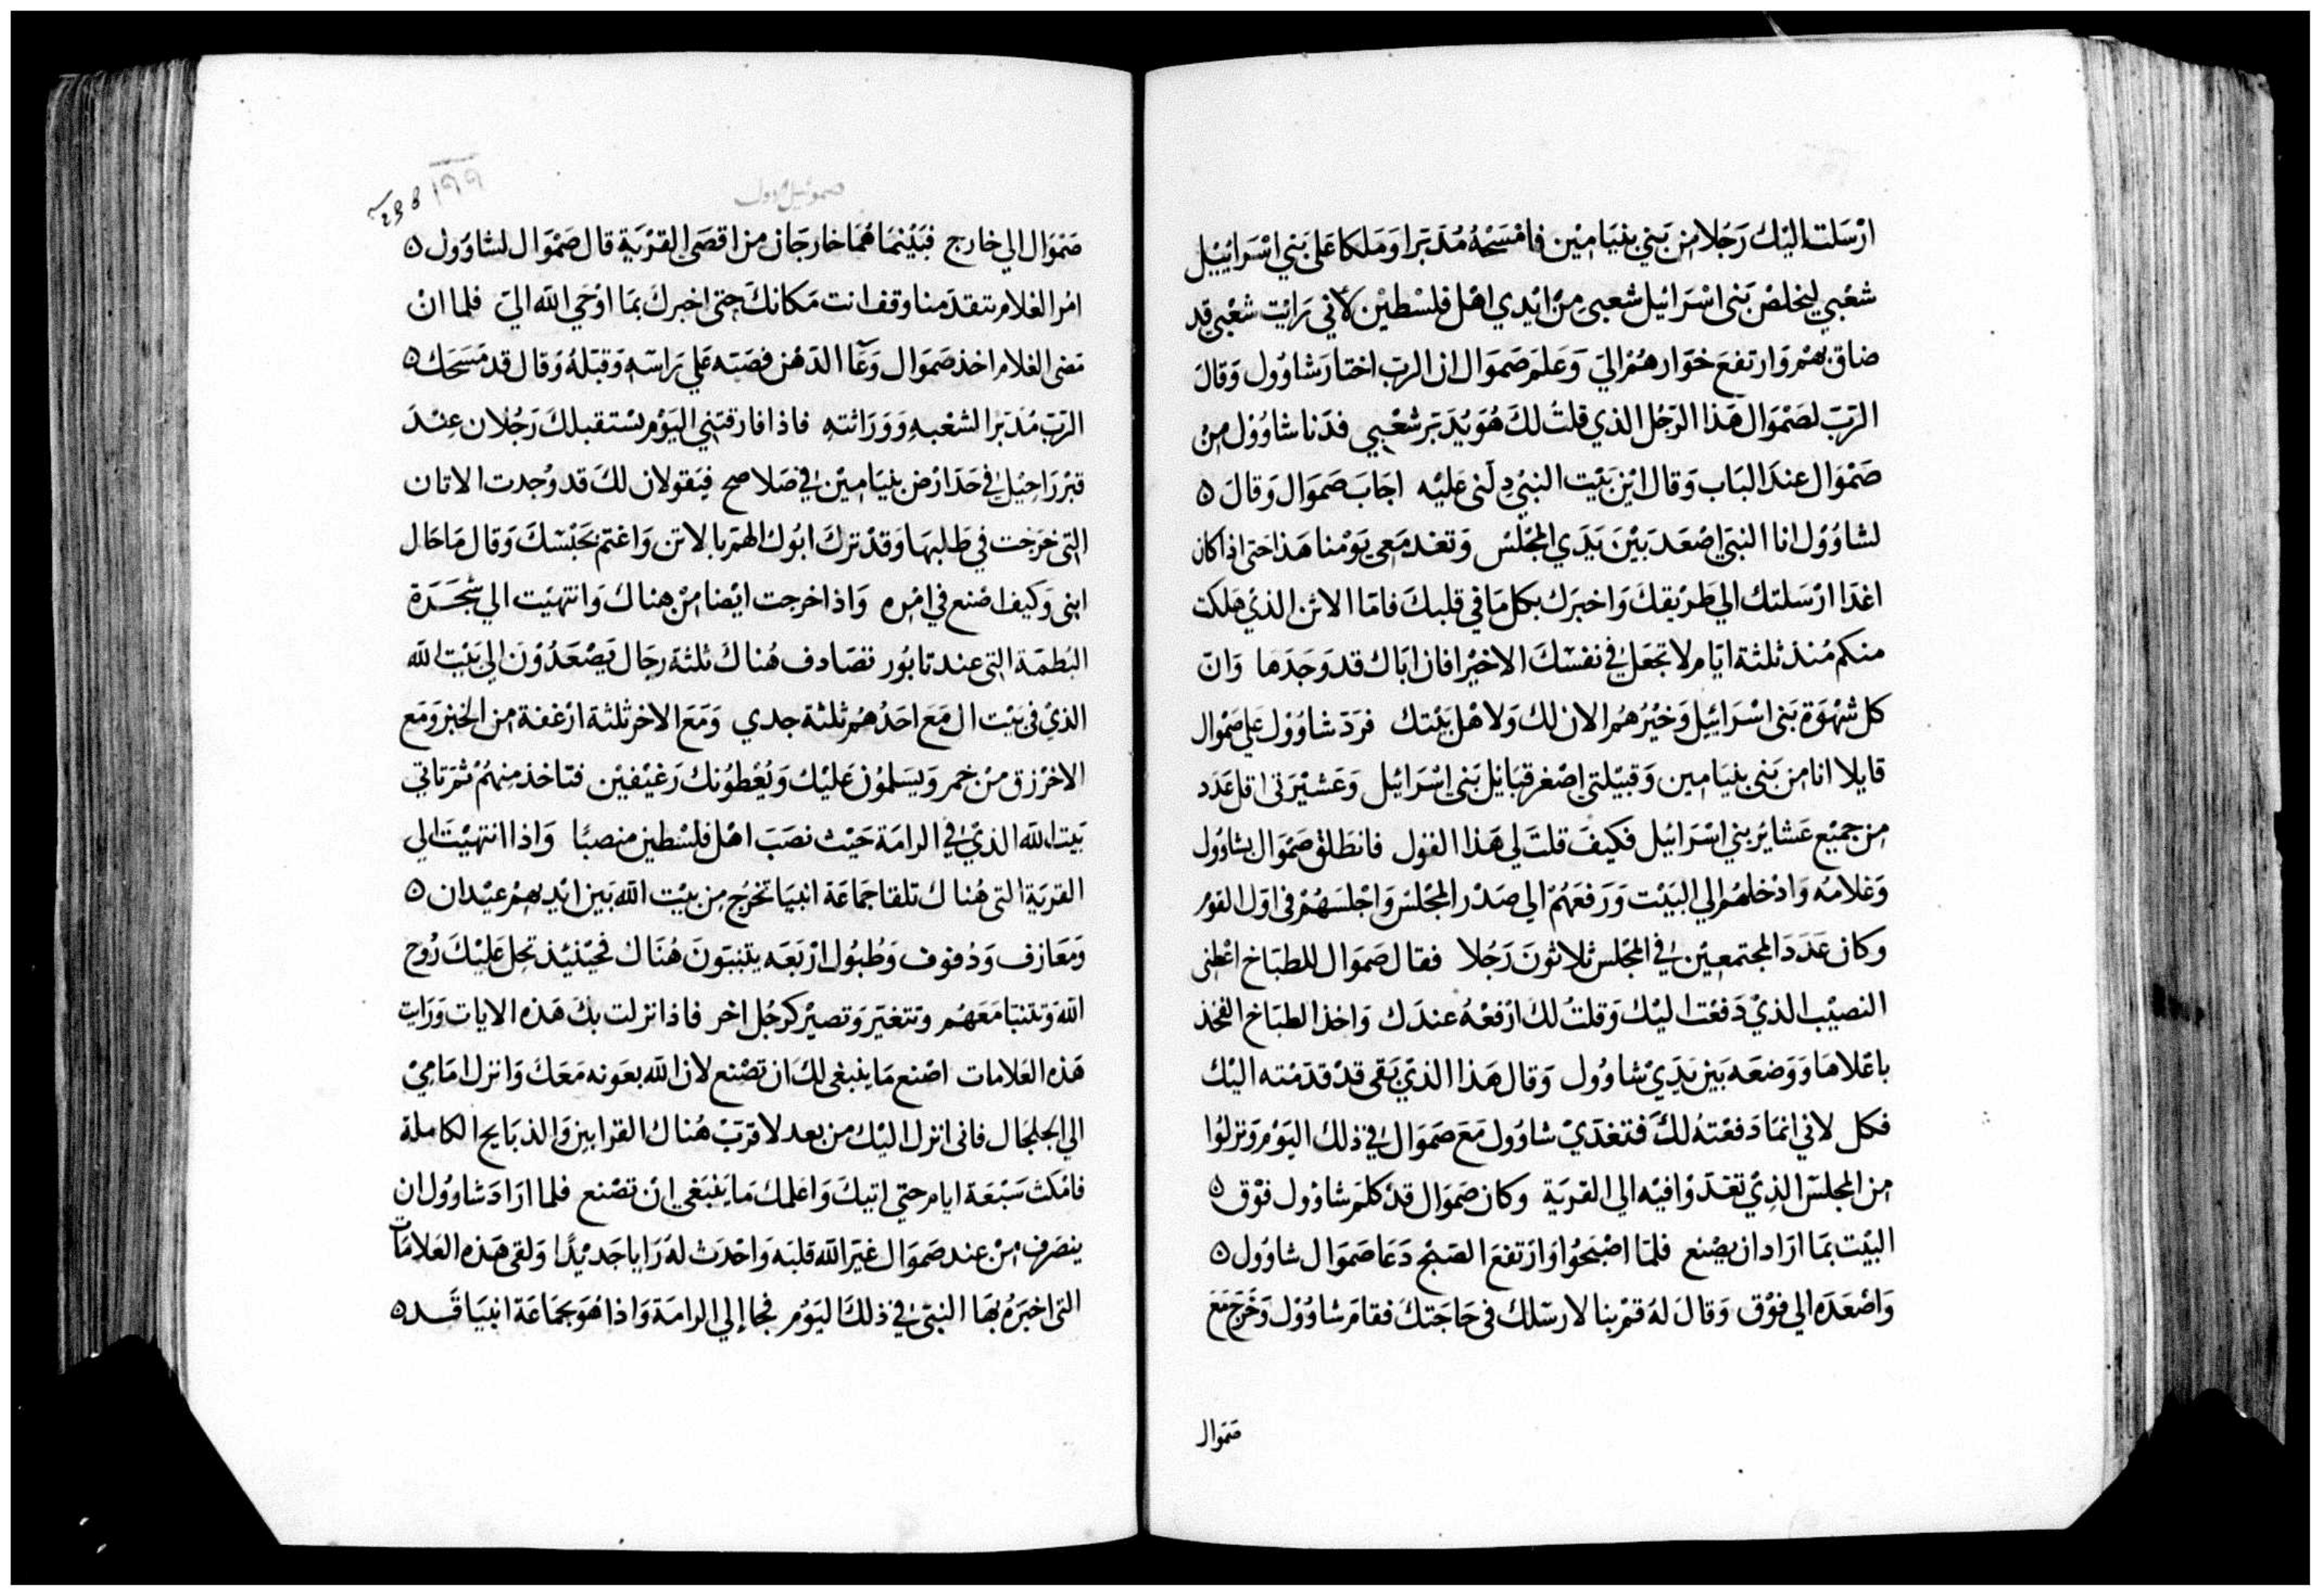 ارْسَلت اليْك رَجُلا من بَني بنيَامِيْن فامْسَحْهُ مُدَبّرا وَمَلكا عَلى بَني اسْرَائِييْل
شعْبي ليخلصْ بَنى اسْرَائيل شعبى مِنْ ايْدي اهْل فلسْطيْن لأني رَايْت شعْبي قد
ضاق بهمْ وَارتفعَ خوَارهُمْ اليَ وَعَلمَ صَموَال ان الربّ اختارَ شاوُول وَقالَ
الرّبّ لصَمْوَال هَذا الرّجُل الذي قلتُ لكَ هُوَ يُدَبّر شعْبي فدَنا شاوُوْل مِنْ
صَمْوَال عندَ البَاب وَقال ايْن بَيْت النبيْ دِلَنى عَليْه اجَابَ صَمَوَال وَقالَ ٥
لشاوُوْل انا النبيّ اصْعَد بَيْنَ يَدَي المجْلسْ وَتغدمَعي يَوْمنا هَذا حَتى اذا كان
اغدَا ارْسَلتك الي طَريْقكَ وَاخبرَك بكل مَا في قلبكَ فامّا الاتن الذيْ هَلكت
منكم مُنذ ثلثة ايّام لا تجعَل في نفسْكَ الاخيْرا فان ابَاك قد وَجَدَها وَانّ
كل شهْوَة بَنى اسْرَائيل وَخيْرُهُم الان لك وَلاهْل بَيْتك فرَدّ شاوُوْل عَلي صَمْوال
قايلا انا من بَنى بنيَامين وَقبيْلتي اصْغر قبَايْل بَني اسْرَائيل وَعَشيْرَتى اقل عَدَد
من جميْع عَشايْر بني اسْرَائيل فكيْفَ قلتَ لي هَذا القول فانطَلقْ صَمْوَال بشاوُول
وَغلامَه وَادْخلهُمْ الي البَيْت وَرَفعَهُمْ الي صَدْر المجْلسْ وَاجْلسَهُمْ فى اوّل القوْم
وكان عَدَدَ المجتمعِيْن في المجْلس ثلاثونَ رَجُلا فقال صَمَوَال للطبَاخ اعْطنى
النصيْب الذيْ دَفعْت اليْك وَقلتُ لكَ ارْفعْهُ عندَك وَاخذ الطبَاخ الفخذ
باعْلاهَا وَوَضعَه بَيْن يَدَيْ شاوُول وَقال هَذا الذيْ بَقى قدْ قدّمْته اليْك
فكل لاني انمَا دَفعْتهُ لكَ فتغدّيْ شاوُول مَعَ صَموَال في ذلك اليَوْم وَنزلوُا
من المجلسْ الذِيْ تغدّوْا فيْه الي القريَة وكان صَمَوَال قدْ كلمَ شاوُول فوْق ٥
البيْت بمَا ارَاد ان يصْنع فلمّا اصْبَحُوْا وَارْتفعَ الصبْح دَعَا صَمَوَال شاوُول ٥
وَاصْعَدَه الي فوْق وَقالَ لهَ قمْ بنا لارسّلك فى حَاجَتكَ فقامَ شاوُوْل وَخَرَجَ مَعَ
صَمَوال
٢٩٩
238
صموئيل اول
صَمْوَال الي خارج فبَيْنمَا هُمَا خارجَان من اقصَى القرْيَة قال صَمْوَال لشاوَول ٥
امُر الغلام يتقدّمنا وقف انت مَكانكَ حتى اخبركَ بمَا اوْحَي الله اليَ فلما انْ
مَضى الغلام اخذ صَموَال وَعَآ الدَهْن فصَبَه عَلي رَاسَه وَقبَلهُ وَقال قد مَسَحَك ٥
الرَبّ مُدَبّرا لشعْبه وَوَرَاثته فاذا فارقتني اليَوْم يستقبلكَ رَجُلان عِنْدَ
قبْر رَاحِيْل في حَدّ ارْض بنيَامِيْن في صَلاصح فيَقولان لكَ قد وُجدت الاتان
التى خرَجت في طَلبهَا وَقدْ ترَك ابُوك الهمّ بالاتن وَاغتم بحَبْسكَ وَقال مَا حَال
ابنى وَكيف اصْنع في امْره وَاذا خرجت ايْضا مِنْ هناكَ وَانتهيْت الي شَجَرَة
البُطمَة التى عند تابُور تصَادف هُناكَ ثلثة رجَال يَصْعَدُوْنَ الي بَيْت الله
الذيْ في بَيْت ال مَعَ احَدهُمْ ثلثة جدي وَمَعَ الاخر ثلثة ارْغفة من الخبز وَمَع
الاخرْ زق منْ خمر وَيسَلمُوْن عَليْك وَيُعْطوُنك رَغيْفيْن فتاخذ مِنهُمْ ثمّ تاتي
بَيت الله الذيْ في الرامَة حَيْث نصَبَ اهْل فلسْطين منصبًا وَاذا انتهيْتَ الي
القريَة التى هُناك تلقا جَمَاعَة انبيَا تخرُج من بيْت الله بَين ايْديهمْ عيْدان ٥
وَمَعَازف وَدُفوف وَطُبُول ارْبَعَه يتنبّونَ هُنَاك فحيْنئِذ تحل عَليْكَ رُوح
الله وَتتنبّا مَعَهُم وَتتغيّر وَتصيْر كرجُل اخر فاذا نزلت بكَ هَذه الايات وَرَايت
هَذه العَلامات اصْنع مَا ينبغى لكَ ان تصْنع لان الله بعَونه مَعَكَ وَانزل امَامِيْ
الي الجلجال فانى انزل اليْك من بعد لاقرّبَ هُناك القرابين وَالذبَايح الكاملة
فامْكث سَبْعَة ايام حتي اتيكَ وَاعلمكَ مَا يَنبَغي انْ تصْنع فلما ارَادَ شاوُول ان
ينصَرف مِنْ عند صَموَال غيّر الله قلبَه وَاحْدَث لهَ رَايا جَديْدًا وَلقى هَذه العَلامَات
التى اخبَرهُ بهَا النبيّ في ذلكَ اليَوُم فجا إلي الرامَة وَاذا هُوَ بجمَاعَة انبيَا قَد ٥